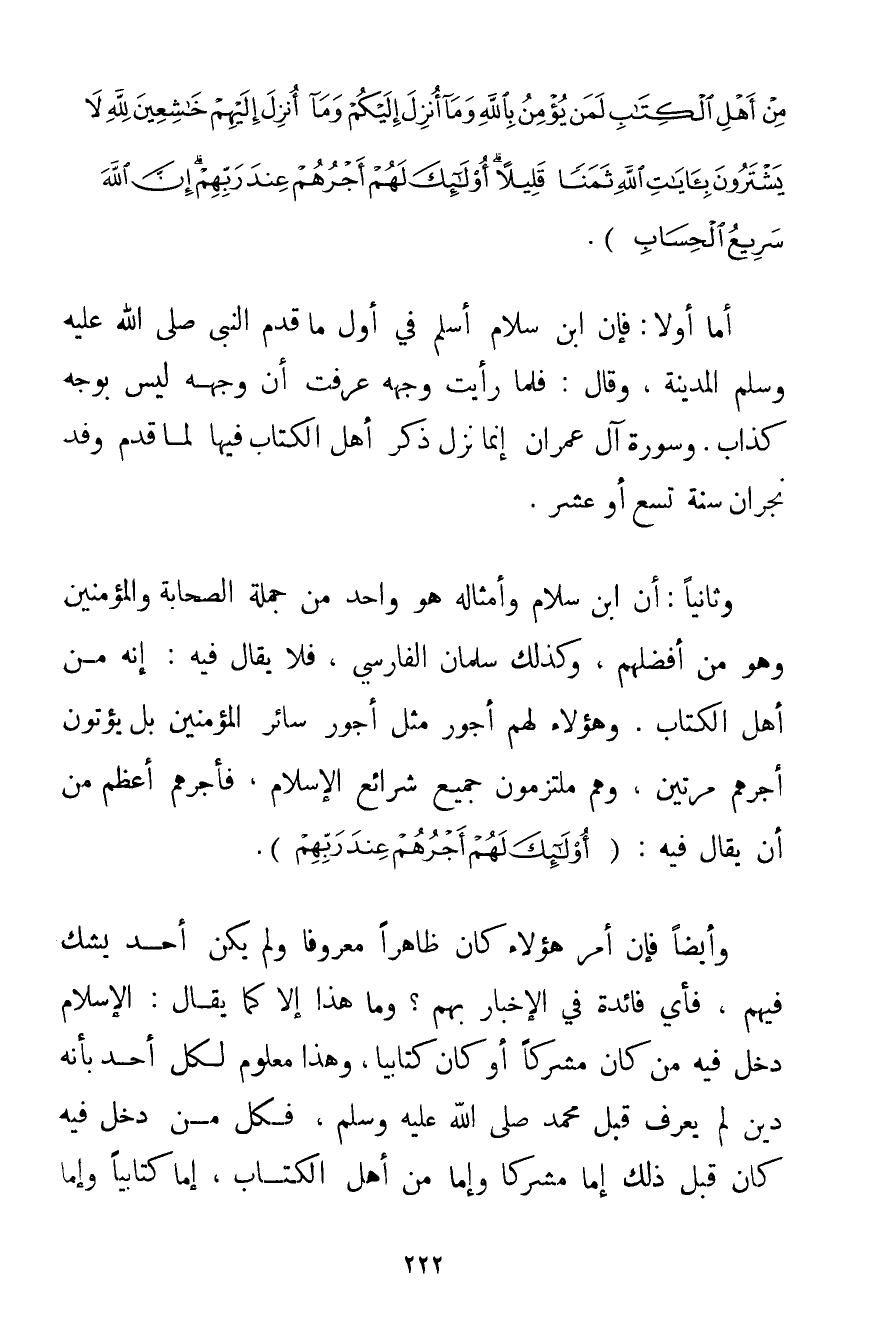 مِنْ أَهْلِ ٱلْكِتَٰبِ لَمَن يُؤْمِنُ بِٱللَّهِ وَمَآ أُنزِلَ إِلَيْكُمْ وَمَآ أُنزِلَ إِلَيْهِمْ خَٰشِعِينَ لِلَّهِ لَا
يَشْتَرُونَ بِـَٔايَٰتِ ٱللَّهِ ثَمَنًا قَلِيلًا ۗ أُو۟لَٰٓئِكَ لَهُمْ أَجْرُهُمْ عِندَ رَبِّهِمْ ۗ إِنَّ ٱللَّهَ
سَرِيعُ ٱلْحِسَابِ ) .
أما أولا : فإن ابن سلام أسلم في أول ما قدم النبى صلى الله عليه
وسلم المدينة ، وقال : فلما رأيت وجهه عرفت أن وجهه ليس بوجه
كذاب . وسورة آل عمران إنما نزل ذكر أهل الكتاب فيها لما قدم وفد
نجران سنة تسع أو عشر .
وثانياً : أن ابن سلام وأمثاله هو واحد من جملة الصحابة والمؤمنين
وهو من أفضلهم ، وكذلك سلمان الفارسي ، فلا يقال فيه : إنه من
أهل الكتاب . وهؤلاء لهم أجور مثل أجور سائر المؤمنين بل يؤتون
أجرهم مرتين ، وهم ملتزمون جميع شرائع الإسلام ، فأجرهم أعظم من
أن يقال فيه : ( أُو۟لَٰٓئِكَ لَهُمْ أَجْرُهُمْ عِندَ رَبِّهِمْ ) .
وأيضاً فإن أمر هؤلاء كان ظاهراً معروفا ولم يكن أحد يشك
فيهم ، فأي فائدة في الإخبار بهم ؟ وما هذا إلا كما يقال : الإسلام
دخل فيه من كان مشركاً أو كان كتابيا ، وهذا معلوم لكل أحد بأنه
دين لم يعرف قبل محمد صلى الله عليه وسلم ، فكل من دخل فيه
كان قبل ذلك إما مشركا وإما من أهل الكتاب ، إما كتابياً وإما
٢٢٢